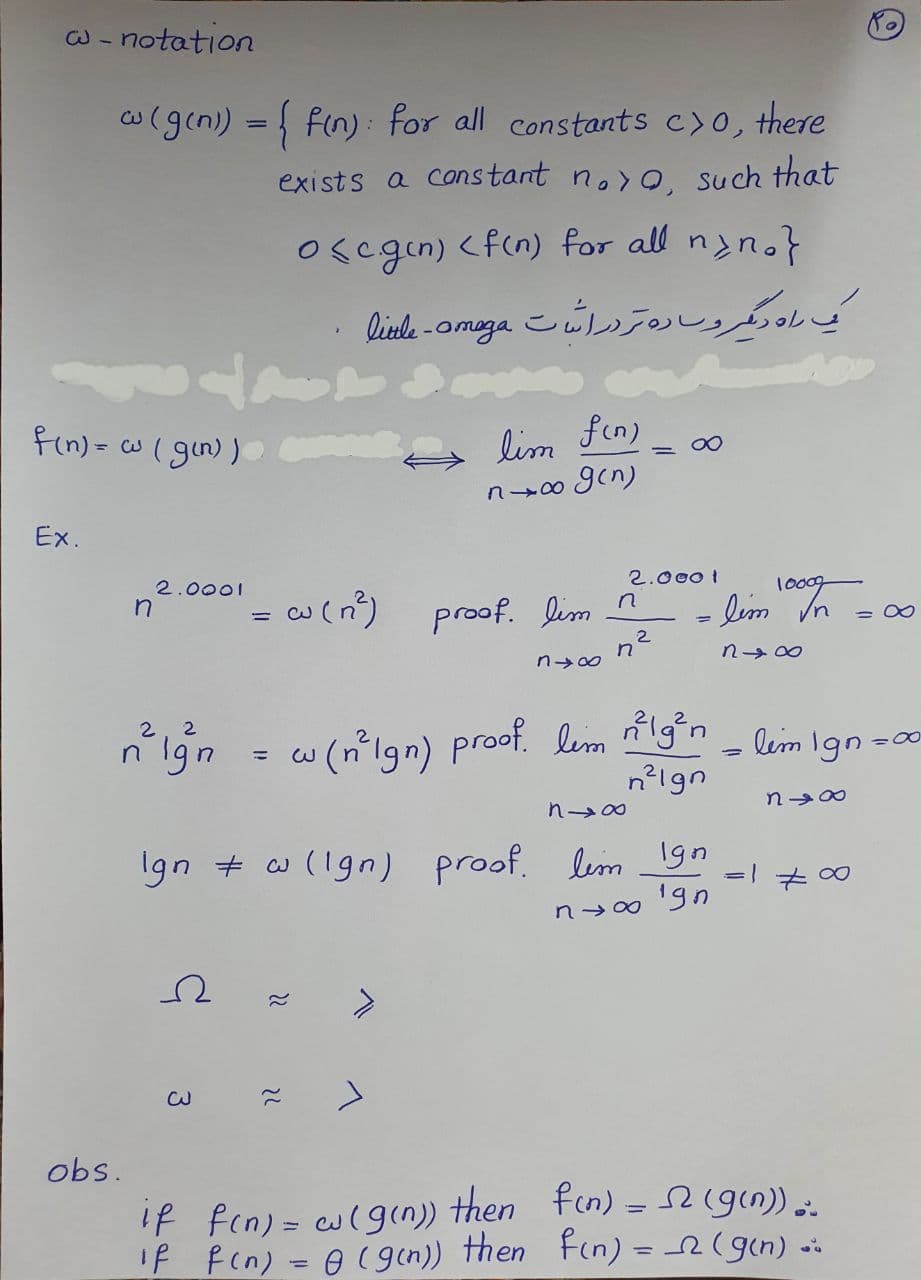 ۲۰
ω - notation
ω(g(n)) = { f(n): for all constants c>0, there
exists a constant n₀>0, such that
0 ≤ c.g(n) < f(n) for all n ≥ n₀}
یک راه دیگر و ساده تر در اثبات little-omega .
f(n) = ω(g(n)) ⟺ lim n→∞ f(n)/g(n) = ∞
Ex.
n^2.0001 = ω(n²) proof. lim n→∞ n^2.0001/n² = lim n→∞ ¹⁰⁰⁰⁰√n = ∞
n²lg²n = ω(n²lgn) proof. lim n→∞ n²lg²n/n²lgn = lim n→∞ lgn = ∞
lgn ≠ ω(lgn) proof. lim n→∞ lgn/lgn = 1 ≠ ∞
Ω ≈ ≥
ω ≈ >
obs.
if f(n) = ω(g(n)) then f(n) = Ω(g(n)) ∴
if f(n) = θ(g(n)) then f(n) = Ω(g(n) ∴